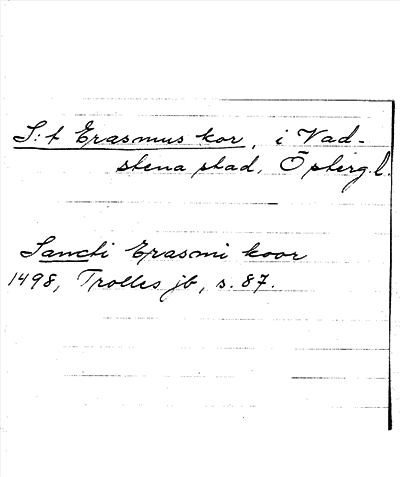 S:t Erasmus kor, i Vad-
stena stad, Östergl.
Sancti Erasmi koor
1498, Trolles jb, s. 87.